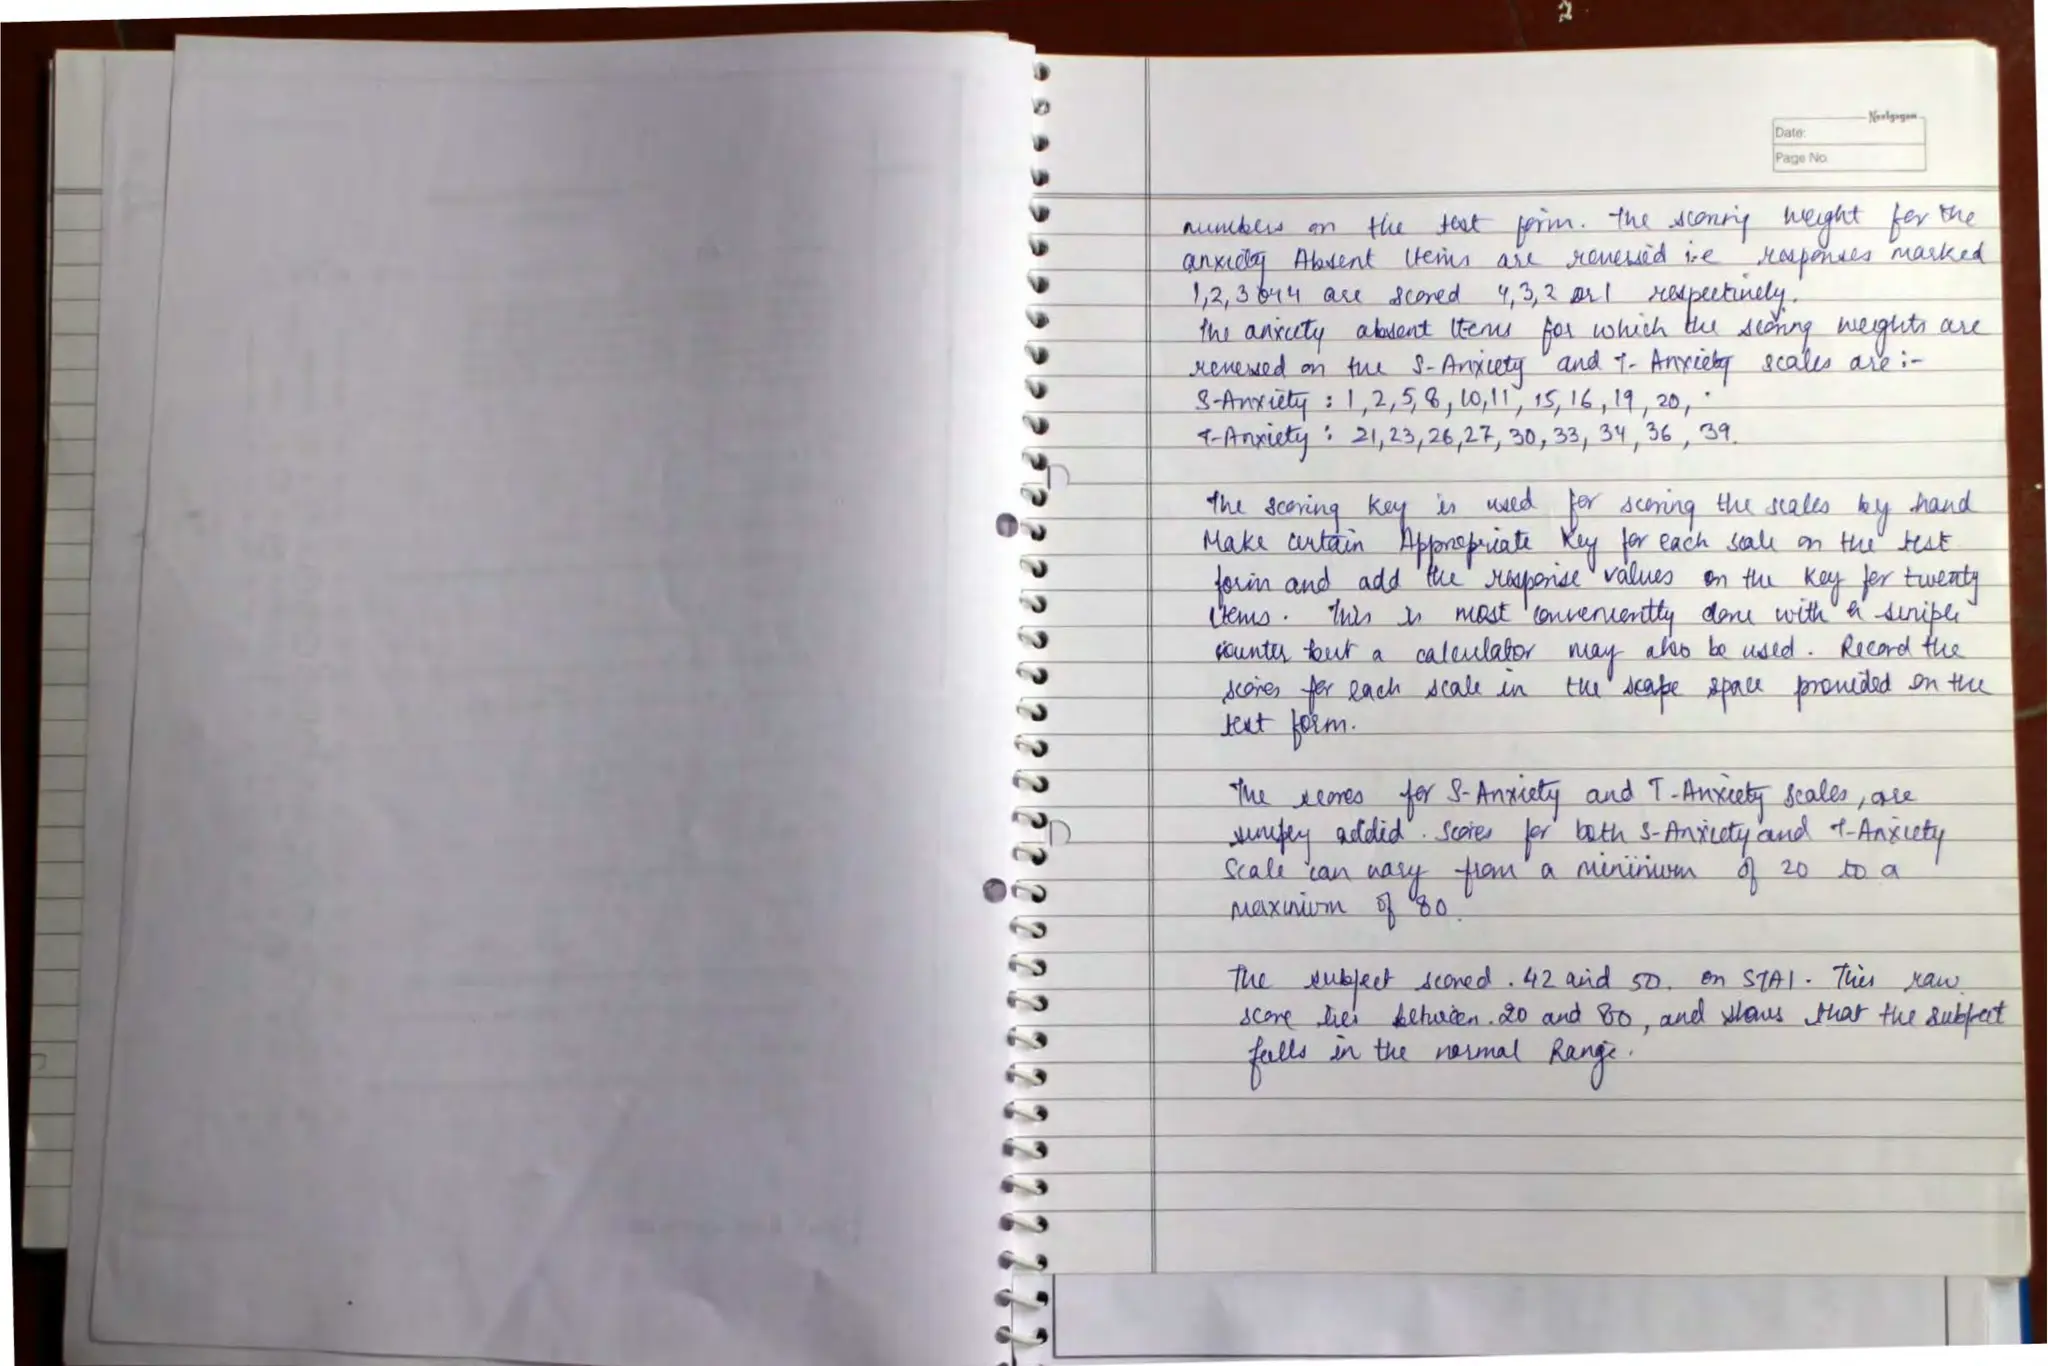 Neelgagan
Date:
Page No.
numbers on the test form. The scoring weight for the
anxiety Absent Items are reversed i.e responses marked
1,2,3 or 4 are scored 4,3,2 or 1 respectively.
The anxiety absent Items for which the scoring weights are
reversed on the S-Anxiety and T-Anxiety scales are :-
S-Anxiety : 1,2,5,8,10,11,15,16,19,20,
T-Anxiety : 21,23,26,27,30,33,34,36,39.
The scoring key is used for scoring the scales by hand
Make certain Appropriate Key for each scale on the test
form and add the response values on the key for twenty
Items. This is most conveniently done with a
counter but a calculator may also be used. Record the
scores for each scale in the space provided on the
test form.
The scores for S-Anxiety and T-Anxiety Scales, are
simply added. Scores for both S-Anxiety and T-Anxiety
Scale can vary from a minimum of 20 to a
maximum of 80.
The subject scored . 42 and 50. on STAI. This raw
score lies between . 20 and 80, and shows that the subject
falls in the normal Range.